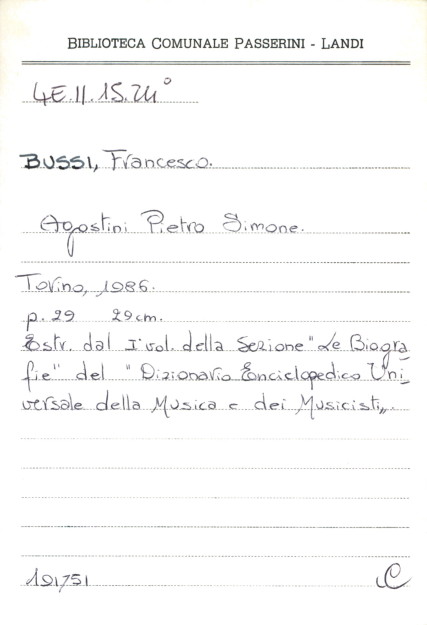 BIBLIOTECA COMUNALE PASSERINI - LANDI
4E.II.15.24°
BUSSI, Francesco.
Agostini Pietro Simone.
Torino, 1986.
p. 29 29cm.
Estr. dal I° vol. della Sezione "Le Biogra
fie" del "Dizionario Enciclopedico Uni
versale della Musica e dei Musicisti„.
191751
C